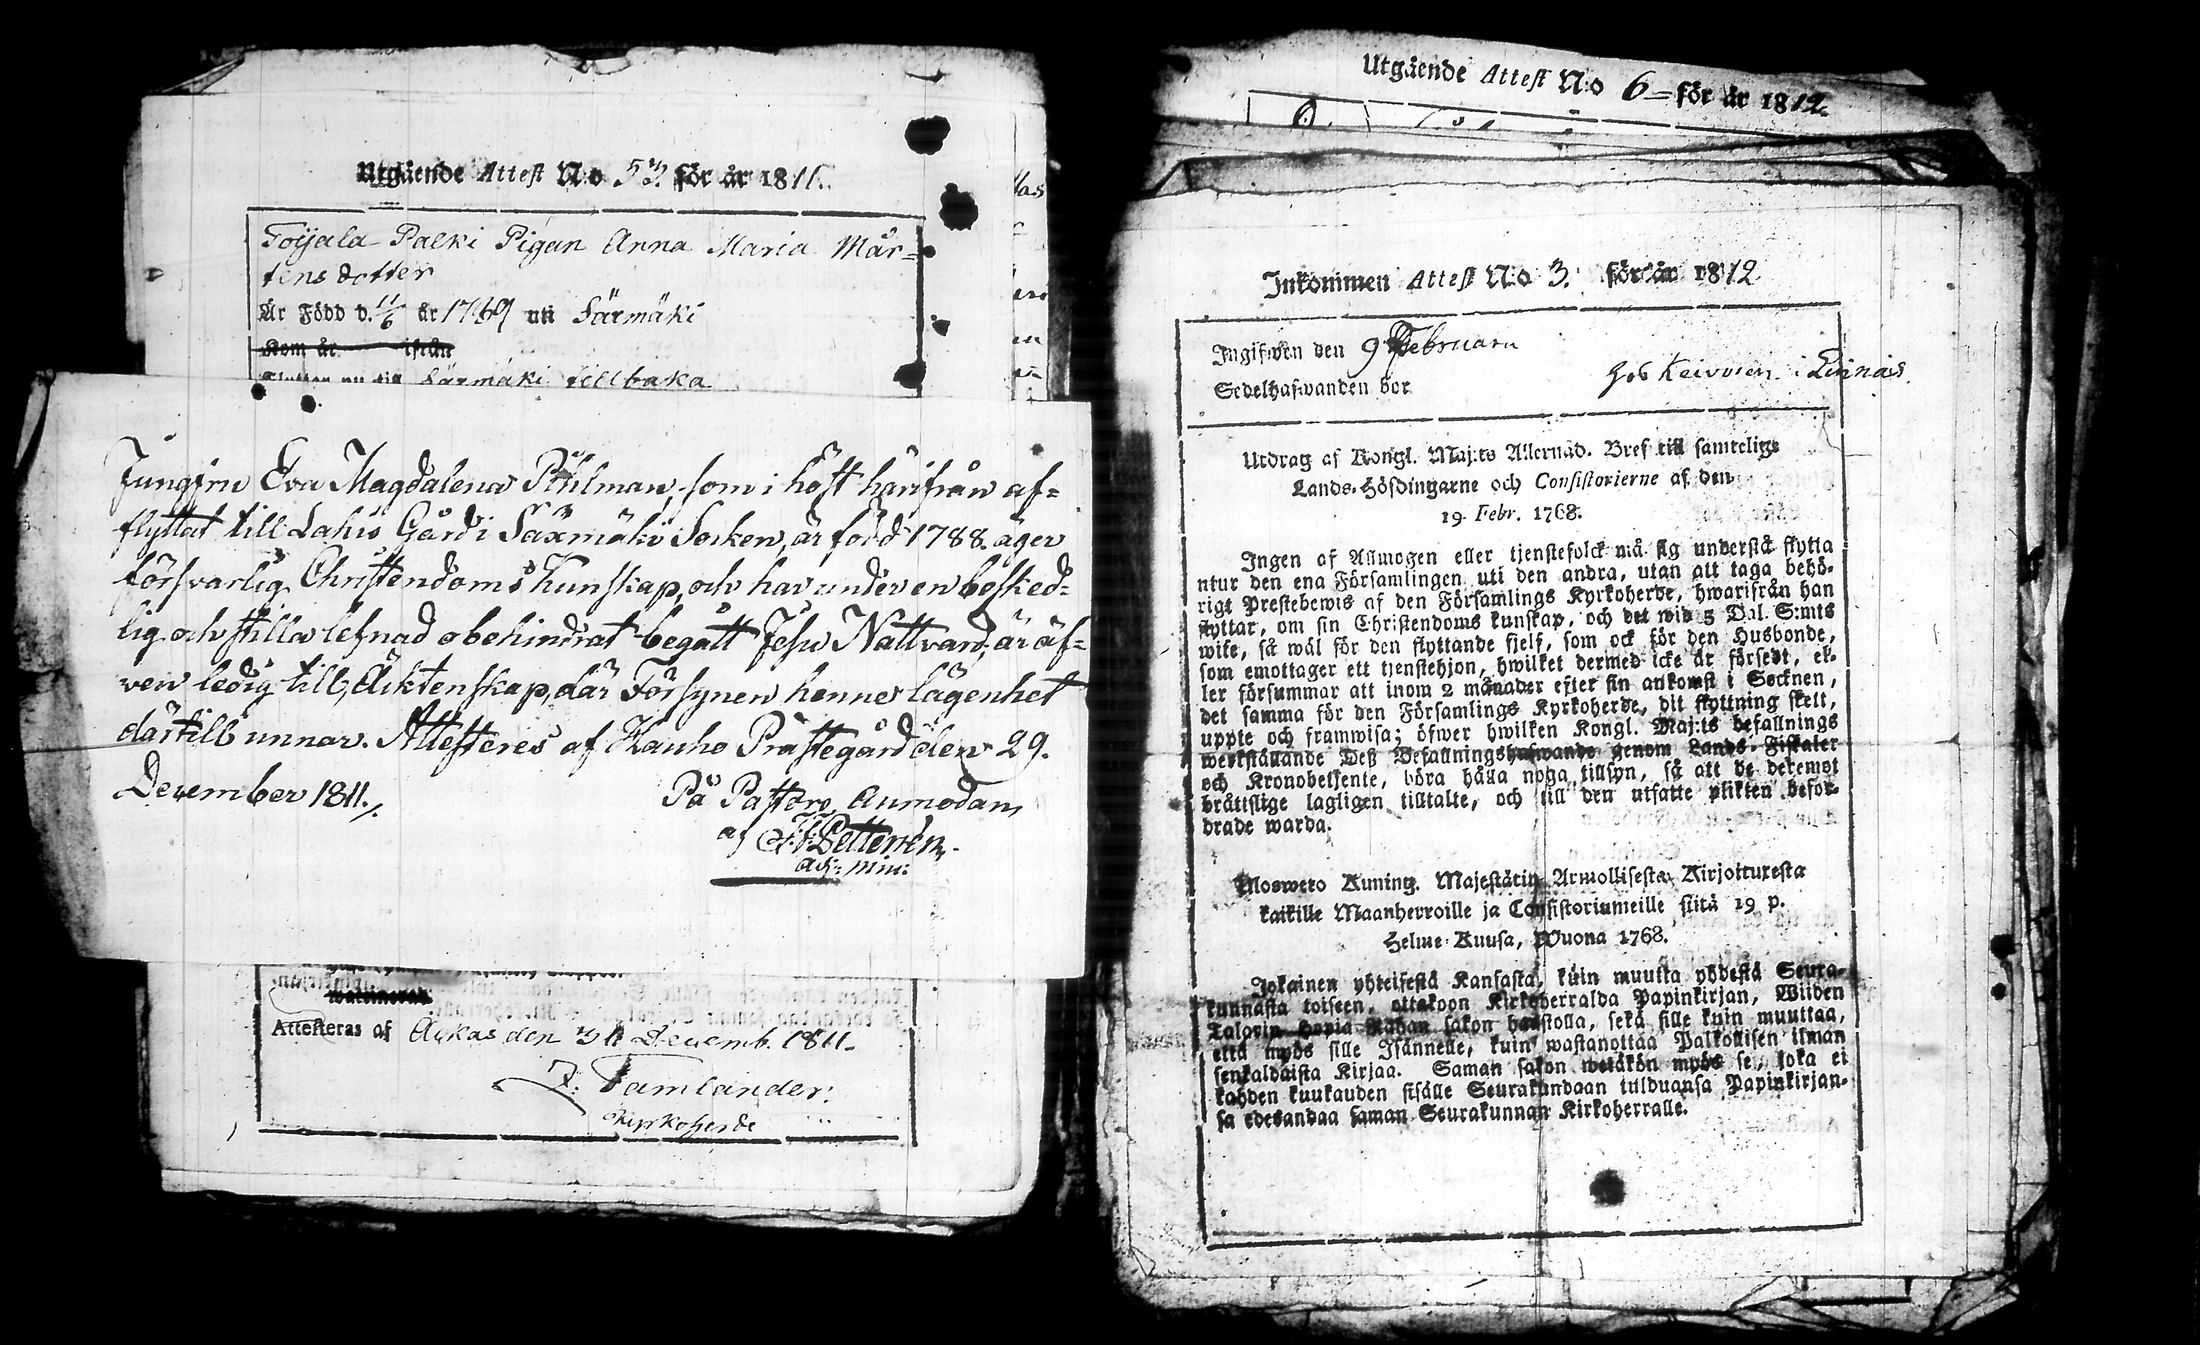 Utgående Attest N:o 53. för år 1811.
Toijala Palki Pigan Anna Maria Mår=
tens dotter
Är Född d. 11/6 år 1769 uti Säxmäki
Kom år ifrån
Säxmäki tillbaka
Jungfru Eva Magdalena Pihlman, som i höst härifrån af=
flyttat till Lahis Gård i Säxmäki Socken, är född 1788. äger
försvarlig Christendoms Kunskap, och har under en besked=
lig och stilla lefnad obehindrat begått Jesu Nattvard; är äf=
ven ledig till Äcktenskap, där Försynen henne lägenhet
därtill unnar. Attesteres af Kauho Prästegård den 29.
December 1811./.
På Pastors Anmodan,
af
Adj: Min:
Attesteras af Ackas den 31 Decemb. 1811.
F. Tamlander.
Kyrkoherde
Utgående Attest N:o 6 = för år 1812.
Inkommen Attest N:o 3. för år 1812
Ingifwen den 9 Februarii
Sedelhafwanden bor hos Keivosen i Linnais.
Utdrag af Kongl. Maj:ts Allernåd. Bref till samtelige
Lands-Höfdingarne och Consistorierne af den
19 Febr. 1768.
Ingen af Allmogen eller tjenstefolck må sig understå flytta
utur den ena Församlingen uti den andra, utan att taga behö-
rigt Prestebewis af den Församlings Kyrkoherde, hwarifrån han
flyttar, om sin Christendoms kunskap, och det wid 5 Dal. S:mts
wite, så wäl för den flyttande sjelf, som ock för den Husbonde,
som emottager ett tjenstehjon, hwilket dermed icke är försedt, el-
ler försummar att inom 2 månader efter sin ankomst i Socknen,
det samma för den Församlings Kyrkoherde, dit flyttning skett,
uppte och framwisa; öfwer hwilken Kongl. Maj:ts befallnings
werkställande Deß Befallningshafwande genom Lands-Fiskaler
och Kronobetjente, böra hålla noga tillsyn, så att de deremot
bråttslige lagligen tilltalte, och till den utsatte plikten befor-
drade warda.
Uloswero Kuning. Majestätin Armollisesta Kirjoituxesta
kaikille Maanherroille ja Consistoriumeille siitä 19 p.
Helme-Kuusa, Wuona 1768.
Jokainen yhteisestä Kansasta, kuin muutta yhdestä Seura-
kunnasta toiseen, ottakoon Kirkoherralda Papinkirjan, Wiiden
Talorin Hopia Rahan sakon haastolla, sekä sille kuin muuttaa,
että myös sille Isännelle, kuin wastanottaa Palkollisen ilman
senkaldaista Kirjaa. Saman sakon wetäkön myös se, joka ei
kahden kuukauden sisälle Seurakundaan tulduansa Papinkirjan-
sa edesandaa saman Seurakunnan Kirkoherralle.